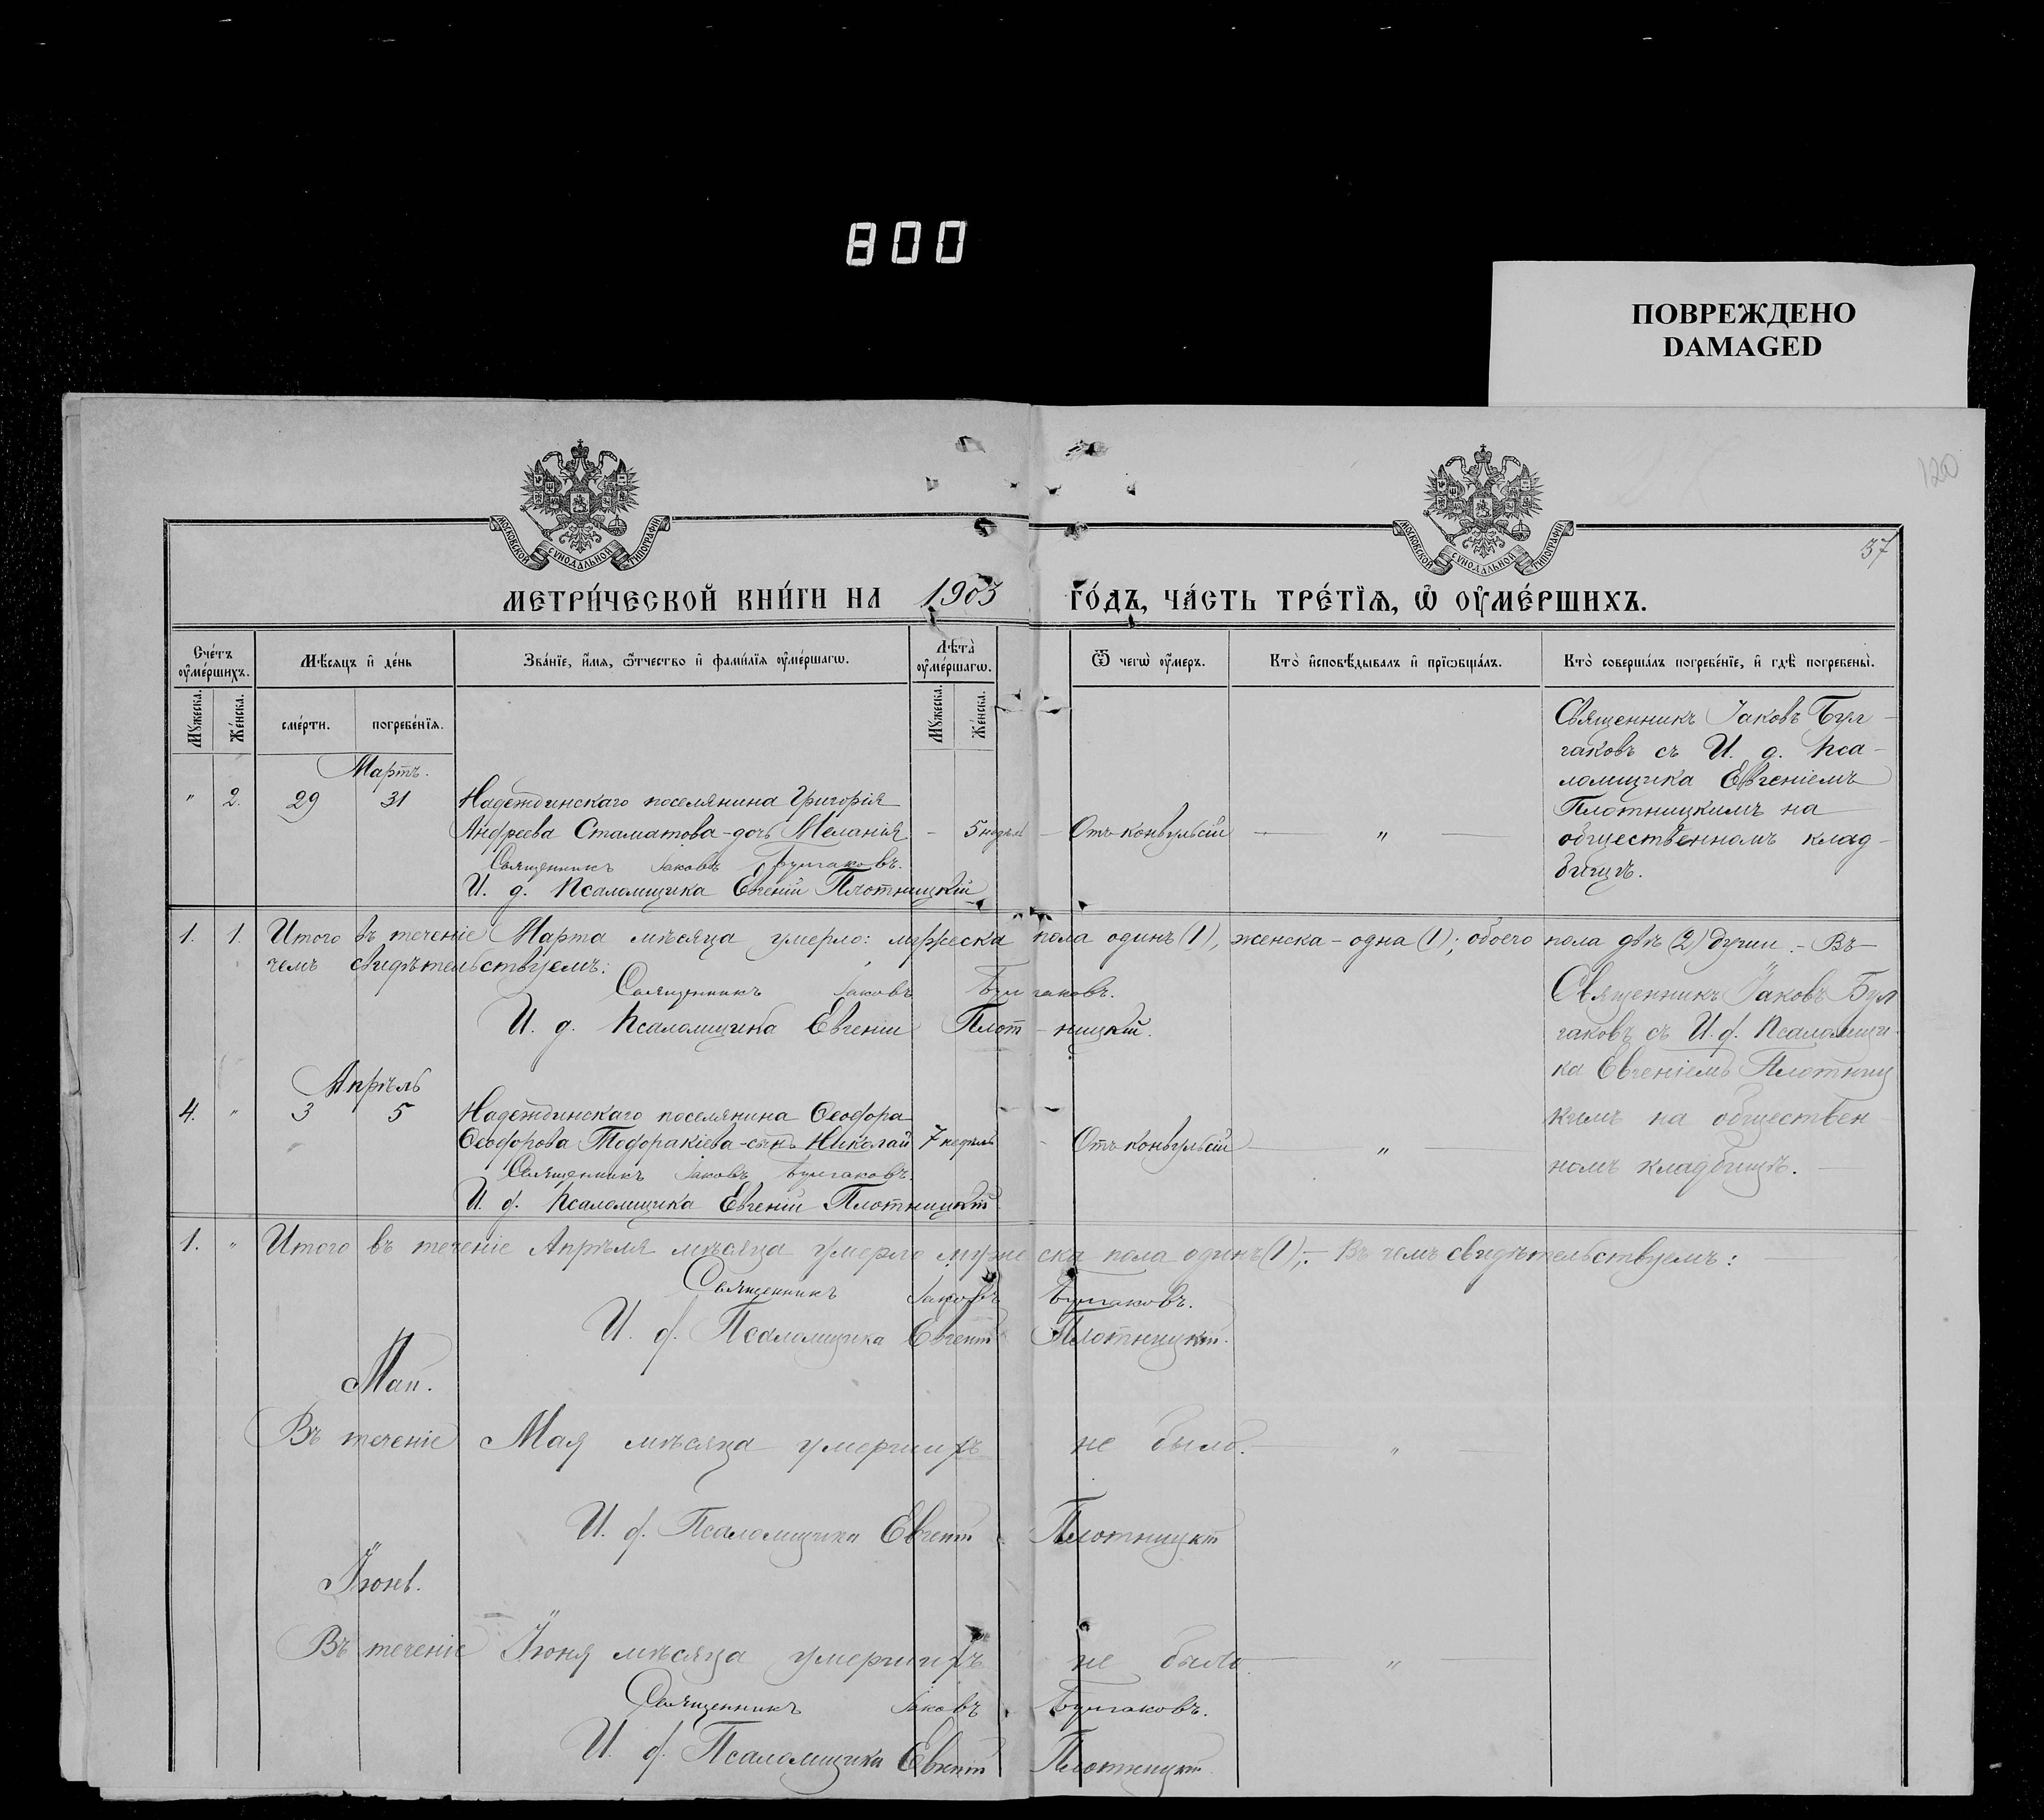 800
ПОВРЕЖДЕНО
DAMAGED
120
37
МОСКОВСКОЙ СѴНОДАЛЬНОЙ ТИПОГРАФІИ
МОСКОВСКОЙ СѴНОДАЛЬНОЙ ТИПОГРАФІИ
МЕТРИ́ЧЕСКОЙ КНИ́ГИ НА 1903 ГО́ДЪ, ЧА́СТЬ ТРЕ́ТІѦ, Ѡ҆ ОУ҆МЕ́РШИХЪ.
Сче́тъ оу҆ме́ршихъ.
Мѣ́сяцъ и҆ де́нь
Зва́нїе, и҆́мя, ѻ҆́тчество и҆ фами́лїя оу҆ме́ршагѡ.
Лѣ́та оу҆ме́ршагѡ.
Ѿ чегѡ̀ оу҆́меръ.
Кто̀ и҆сповѣ́дывалъ и҆ прїѡбща́лъ.
Кто̀ соверша́лъ погребе́нїе, и҆ гдѣ̀ погребены̀.
Мꙋ́жеска.
Же́нска.
сме́рти.
погребе́нїя.
Мꙋ́жеска.
Же́нска.
Мартъ.
" 2. 29 31 Надеждинскаго поселянина Григорія
Андреева Стаматова-дочь Меланія - 5 недѣль - Отъ конвульсій "
Священникъ Іаковъ Булгаковъ.
И. д. Псаломщика Евгеній Плотницкій
Священникъ Іаковъ Бул-
гаковъ съ И. д. Пса-
ломщика Евгеніемъ
Плотницкимъ на
общественномъ клад-
бищѣ.
1. 1. Итого въ теченіе Марта мѣсяца умерло: мужеска пола одинъ (1), женска - одна (1); обоего пола двѣ (2) души. - Въ
чемъ свидѣтельствуемъ:
Священникъ Іаковъ Булгаковъ.
И. д. Псаломщика Евгеній Плот-ницкій.
Апрѣль
4. " 3 5 Надеждинскаго поселянина Ѳеодора
Ѳеодорова Тодоракіева-сынъ Николай 7 недѣль - Отъ конвульсій "
Священникъ Іаковъ Булгаковъ.
И. д. Псаломщика Евгеній Плотницкій
Священникъ Іаковъ Бул
гаковъ съ И. д. Псаломщи-
ка Евгеніемъ Плотниц
кимъ на обществен
номъ кладбищѣ.
1. " Итого въ теченіе Апрѣля мѣсяца умерло мужеска пола одинъ (1),- Въ чемъ свидѣтельствуемъ:
Священникъ Іаковъ Булгаковъ.
И. д. Псаломщика Евгеній Плотницкій.
Май.
Въ теченіе Мая мѣсяца умершихъ не было. "
И. д. Псаломщика Евгеній Плотницкій
Іюнь.
Въ теченіе Іюня мѣсяца умершихъ не было. "
Священникъ Іаковъ Булгаковъ.
И. д. Псаломщика Евгеній Плотницкій